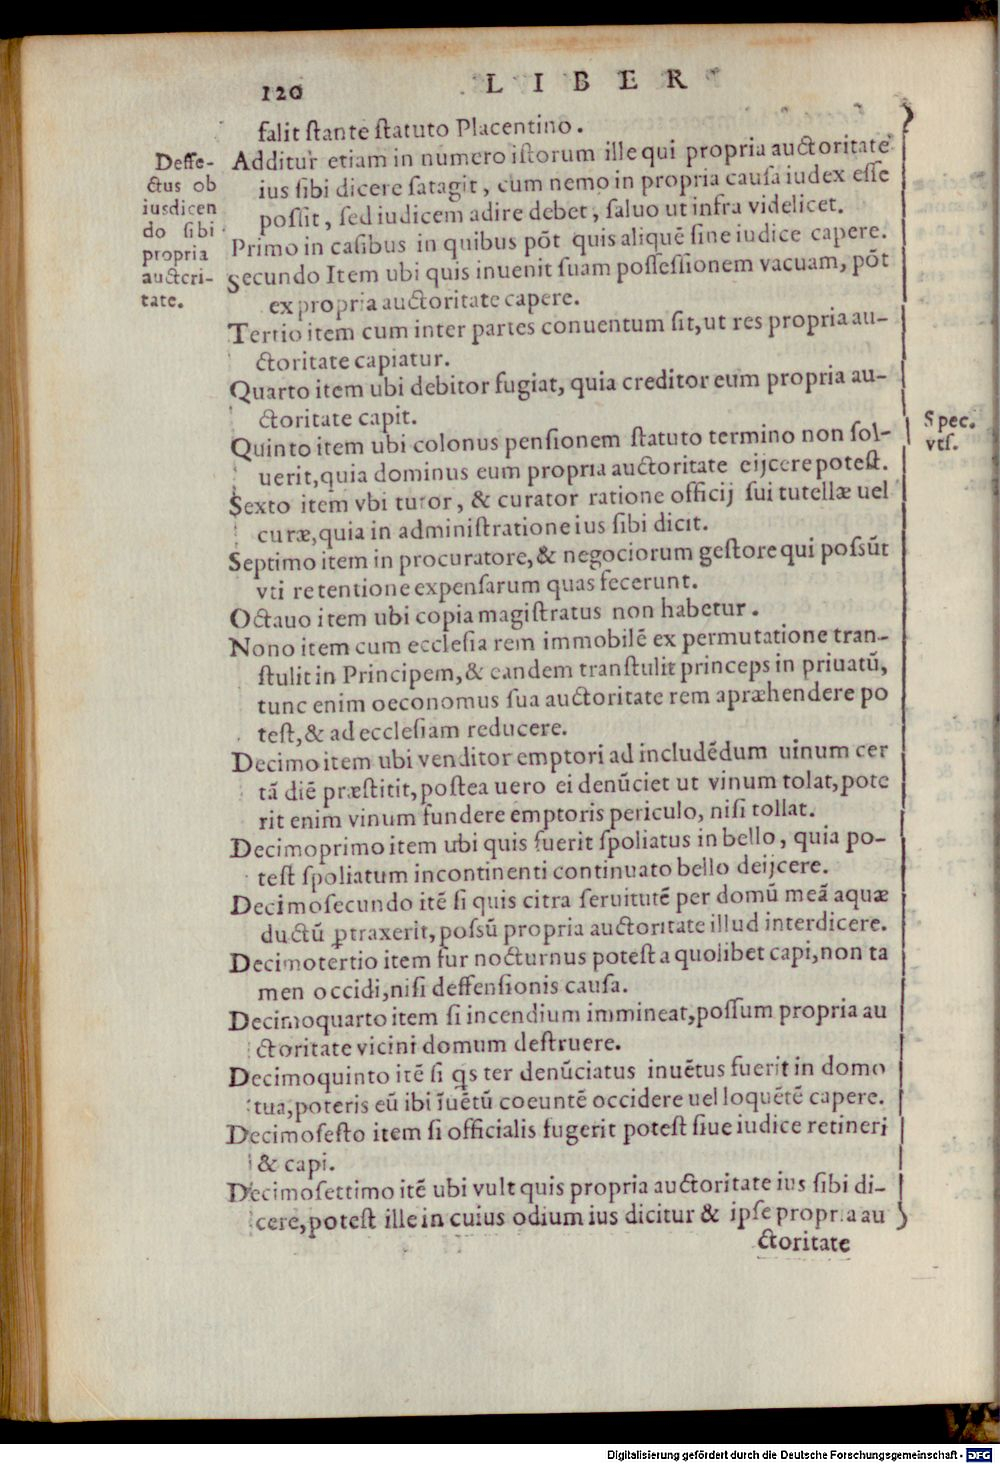 120 LIBER
falit stante statuto Placentino.
Deffe-
ctus ob
iusdicen
do sibi
propria
auctcri-
tate.
Additur etiam in numero istorum ille qui propria auctoritate
ius sibi dicere satagit, cum nemo in propria causa iudex esse
possit, sed iudicem adire debet, saluo ut infra videlicet.
Primo in casibus in quibus põt quis aliquẽ sine iudice capere.
Secundo Item ubi quis inuenit suam possessionem vacuam, põt
ex propria auctoritate capere.
Tertio item cum inter partes conuentum sit, ut res propria au-
ctoritate capiatur.
Quarto item ubi debitor fugiat, quia creditor eum propria au-
ctoritate capit.
Spec.
vts.
Quinto item ubi colonus pensionem statuto termino non sol-
uerit, quia dominus eum propria auctoritate eijcere potest.
Sexto item vbi tutor, & curator ratione officij sui tutellæ uel
curæ, quia in administratione ius sibi dicit.
Septimo item in procuratore, & negociorum gestore qui possũt
vti retentione expensarum quas fecerunt.
Octauo item ubi copia magistratus non habetur.
Nono item cum ecclesia rem immobilẽ ex permutatione tran-
stulit in Principem, & eandem transtulit princeps in priuatũ,
tunc enim oeconomus sua auctoritate rem apræhendere po
test, & ad ecclesiam reducere.
Decimo item ubi venditor emptori ad includẽdum uinum cer
tã diẽ præstitit, postea uero ei denũciet ut vinum tolat, pote
rit enim vinum fundere emptoris periculo, nisi tollat.
Decimoprimo item ubi quis fuerit spoliatus in bello, quia po-
test spoliatum incontinenti continuato bello deijcere.
Decimosecundo itẽ si quis citra seruitutẽ per domũ meã aquæ
ductũ ꝓtraxerit, possũ propria auctoritate illud interdicere.
Decimotertio item fur nocturnus potest a quolibet capi, non ta
men occidi, nisi deffensionis causa.
Decimoquarto item si incendium immineat, possum propria au
ctoritate vicini domum destruere.
Decimoquinto itẽ si q̃s ter denũciatus inuẽtus fuerit in domo
tua, poteris eũ ibi ĩuẽtũ coeuntẽ occidere uel loquẽtẽ capere.
Decimosesto item si officialis fugerit potest siue iudice retineri
& capi.
Decimosettimo itẽ ubi vult quis propria auctoritate ius sibi di-
cere, potest ille in cuius odium ius dicitur & ipse propria au
ctoritate
Digitalisierung gefördert durch die Deutsche Forschungsgemeinschaft - DFG